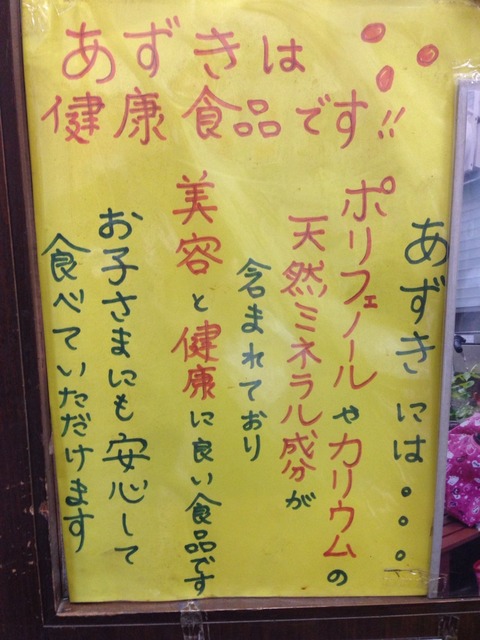 あずきは
健康食品です!!
あずきには。。。
ポリフェノールやカリウムの
天然ミネラル成分が
含まれており
美容と健康に良い食品です
お子さまにも安心して
食べていただけます